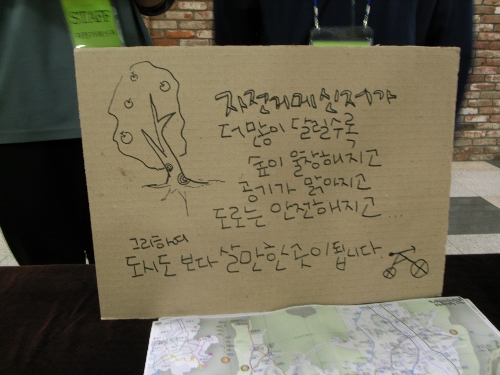 STAFF
자전거메신저가
더 많이 달릴수록
숲이 울창해지고
공기가 맑아지고
도로는 안전해지고...
그리하여
도시도 보다 살만한 곳이 됩니다.